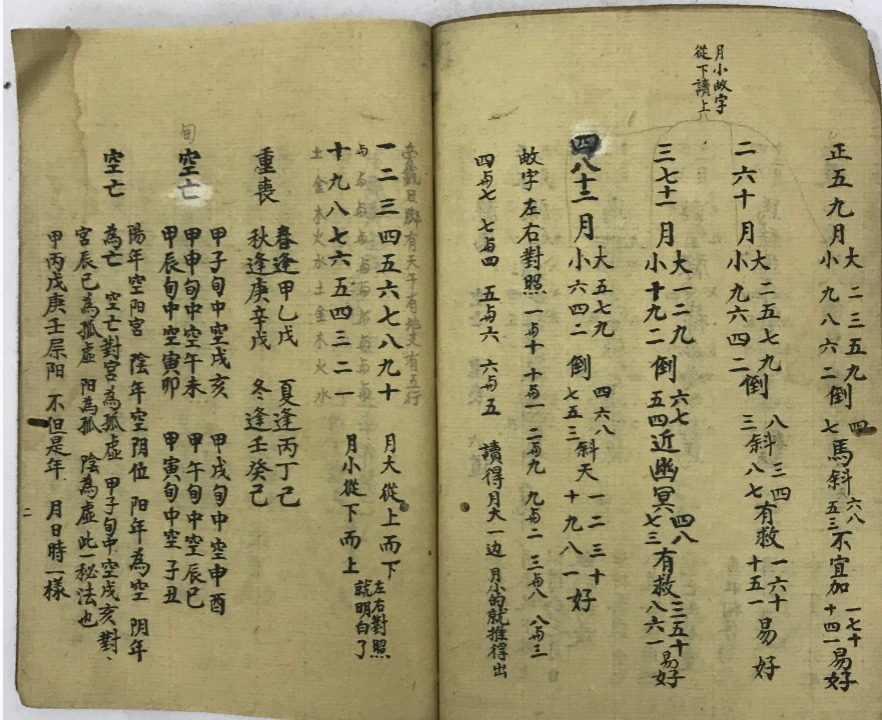 月小故字
從下讀上
正五九月大二三五九倒四馬斜六八不宜加一七十易好
小九八六二七五三十四一
二六十月大二五七九倒八斜三四有救一六十易好
小九六四二三斜八七十五一
三七十一月大一二九倒六七近幽冥四八有救三五十易好
小十九二五四七三八六一
四八十二月大五七九倒四六八斜天一二三十好
小六四二七五三十九八一
故字左右對照 一与十 十与一 二与九 九与二 三与八 八与三
四与七 七与四 五与六 六与五 讀得月大一边 月小的就推得出
一二三四五六七八九十 月大從上而下 左右對照
与与与与与与与与与与
十九八七六五四三二一 月小從下而上 就明白了
土金木火水土金木火水
重喪 春逢甲乙戊 夏逢丙丁己
秋逢庚辛戊 冬逢壬癸己
旬
空亡 甲子旬中空戌亥 甲戌旬中空申酉
甲申旬中空午未 甲午旬中空辰巳
甲辰旬中空寅卯 甲寅旬中空子丑
陽年空阳宮 陰年空阴位 阳年為空 阴年
空亡 為亡 空亡對宮為孤虛 甲子旬中空戌亥對
宮辰巳為孤虛 阳為孤 陰為虛 此一秘法也
甲丙戊庚壬屬阳 不但是年 月日時一樣
二